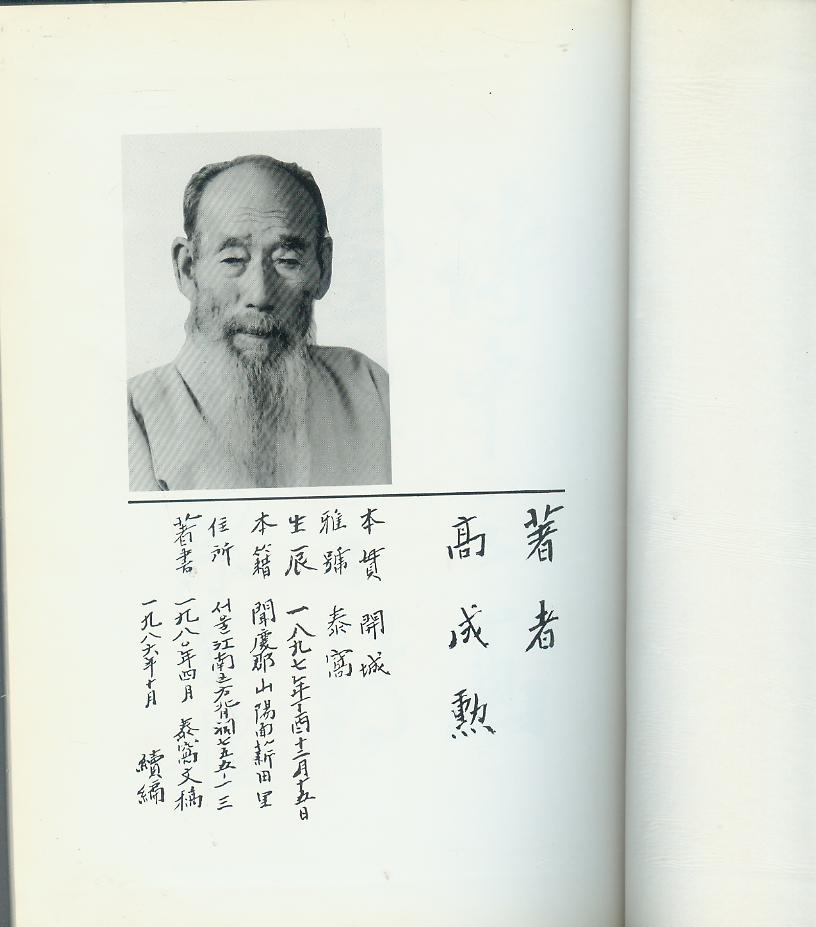 著者
高成勲
本貫 開城
雅號 泰窩
生辰 一八九七年丁酉十二月十五日
本籍 聞慶郡山陽面薪田里
住所 서울江南區方背洞七五五-一三
著書 一九八〇年四月 泰窩文稿
一九八六年十月 續編